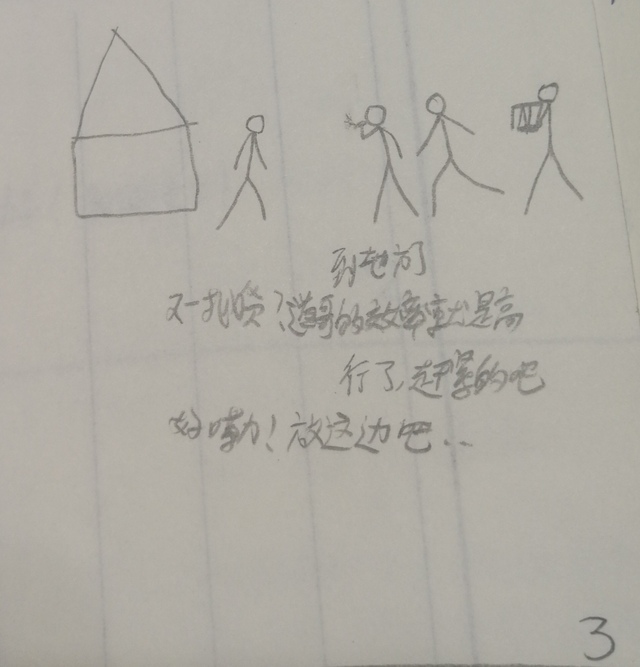 到地方了
又一批货？道哥的效率就是高
行了，赶紧的吧
好嘞！放这边吧..
3